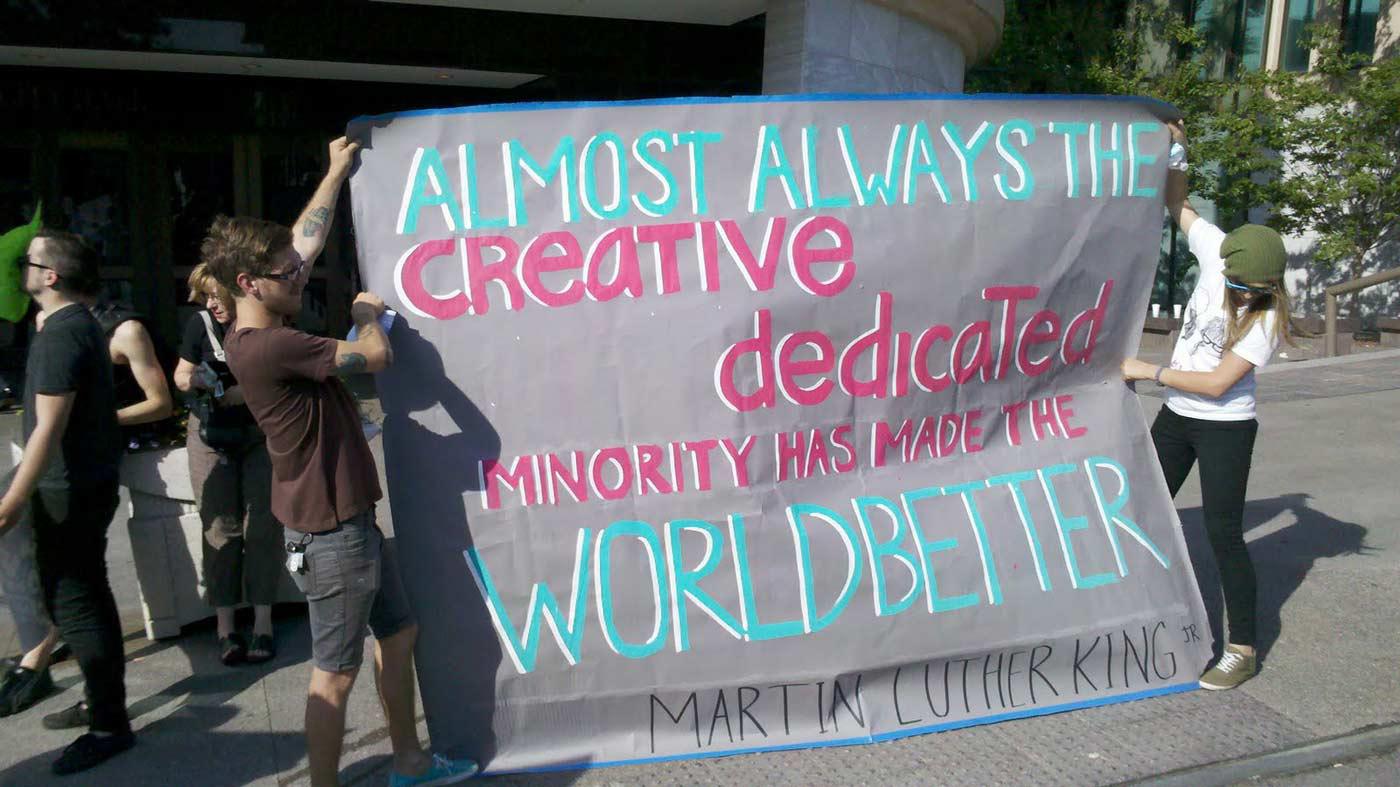 ALMOST ALWAYS THE
CREATIVE
dedicated
MINORITY HAS MADE THE
WORLD BETTER
MARTIN LUTHER KING JR